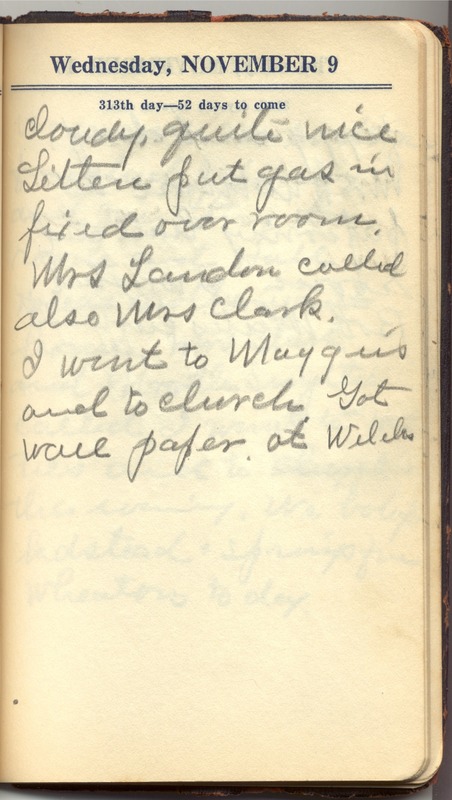 Wednesday, NOVEMBER 9
313th day—52 days to come
cloudy, quite nice
put gas in
fixed over room.
Mrs Landon called
also Mrs Clark.
I went to
and to church. Got
wall paper. at Welchs